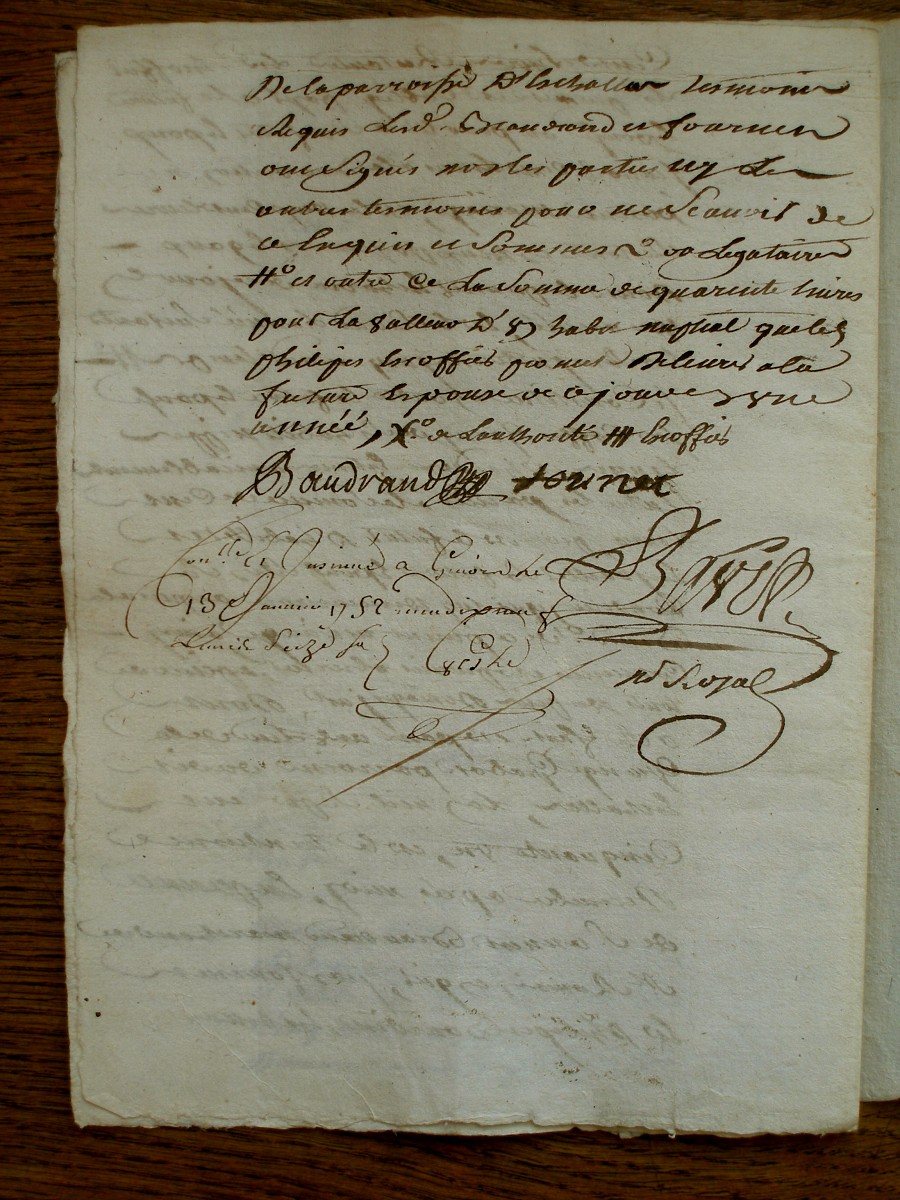 De la parroisse D'Eschallas tesmoins
Requis Lesd. Baudrand et fournier
ont Signés non les parties ny Les
autres tesmoins pour ne Scavoir de
ce Enquis et Sommes 2° ou Legataires
#° et outre ce La Somme de quarente livres
pour La valleur d'un habit nuptial que led
philipes Escoffies promet Delivrer a la
future Espouse de ce jour en une
année, X° de Lauthorité ### Escoffies
Baudrand fournier
Conllé et Insinué a
13e Janvier 1752
Louis Seize
nore Royal